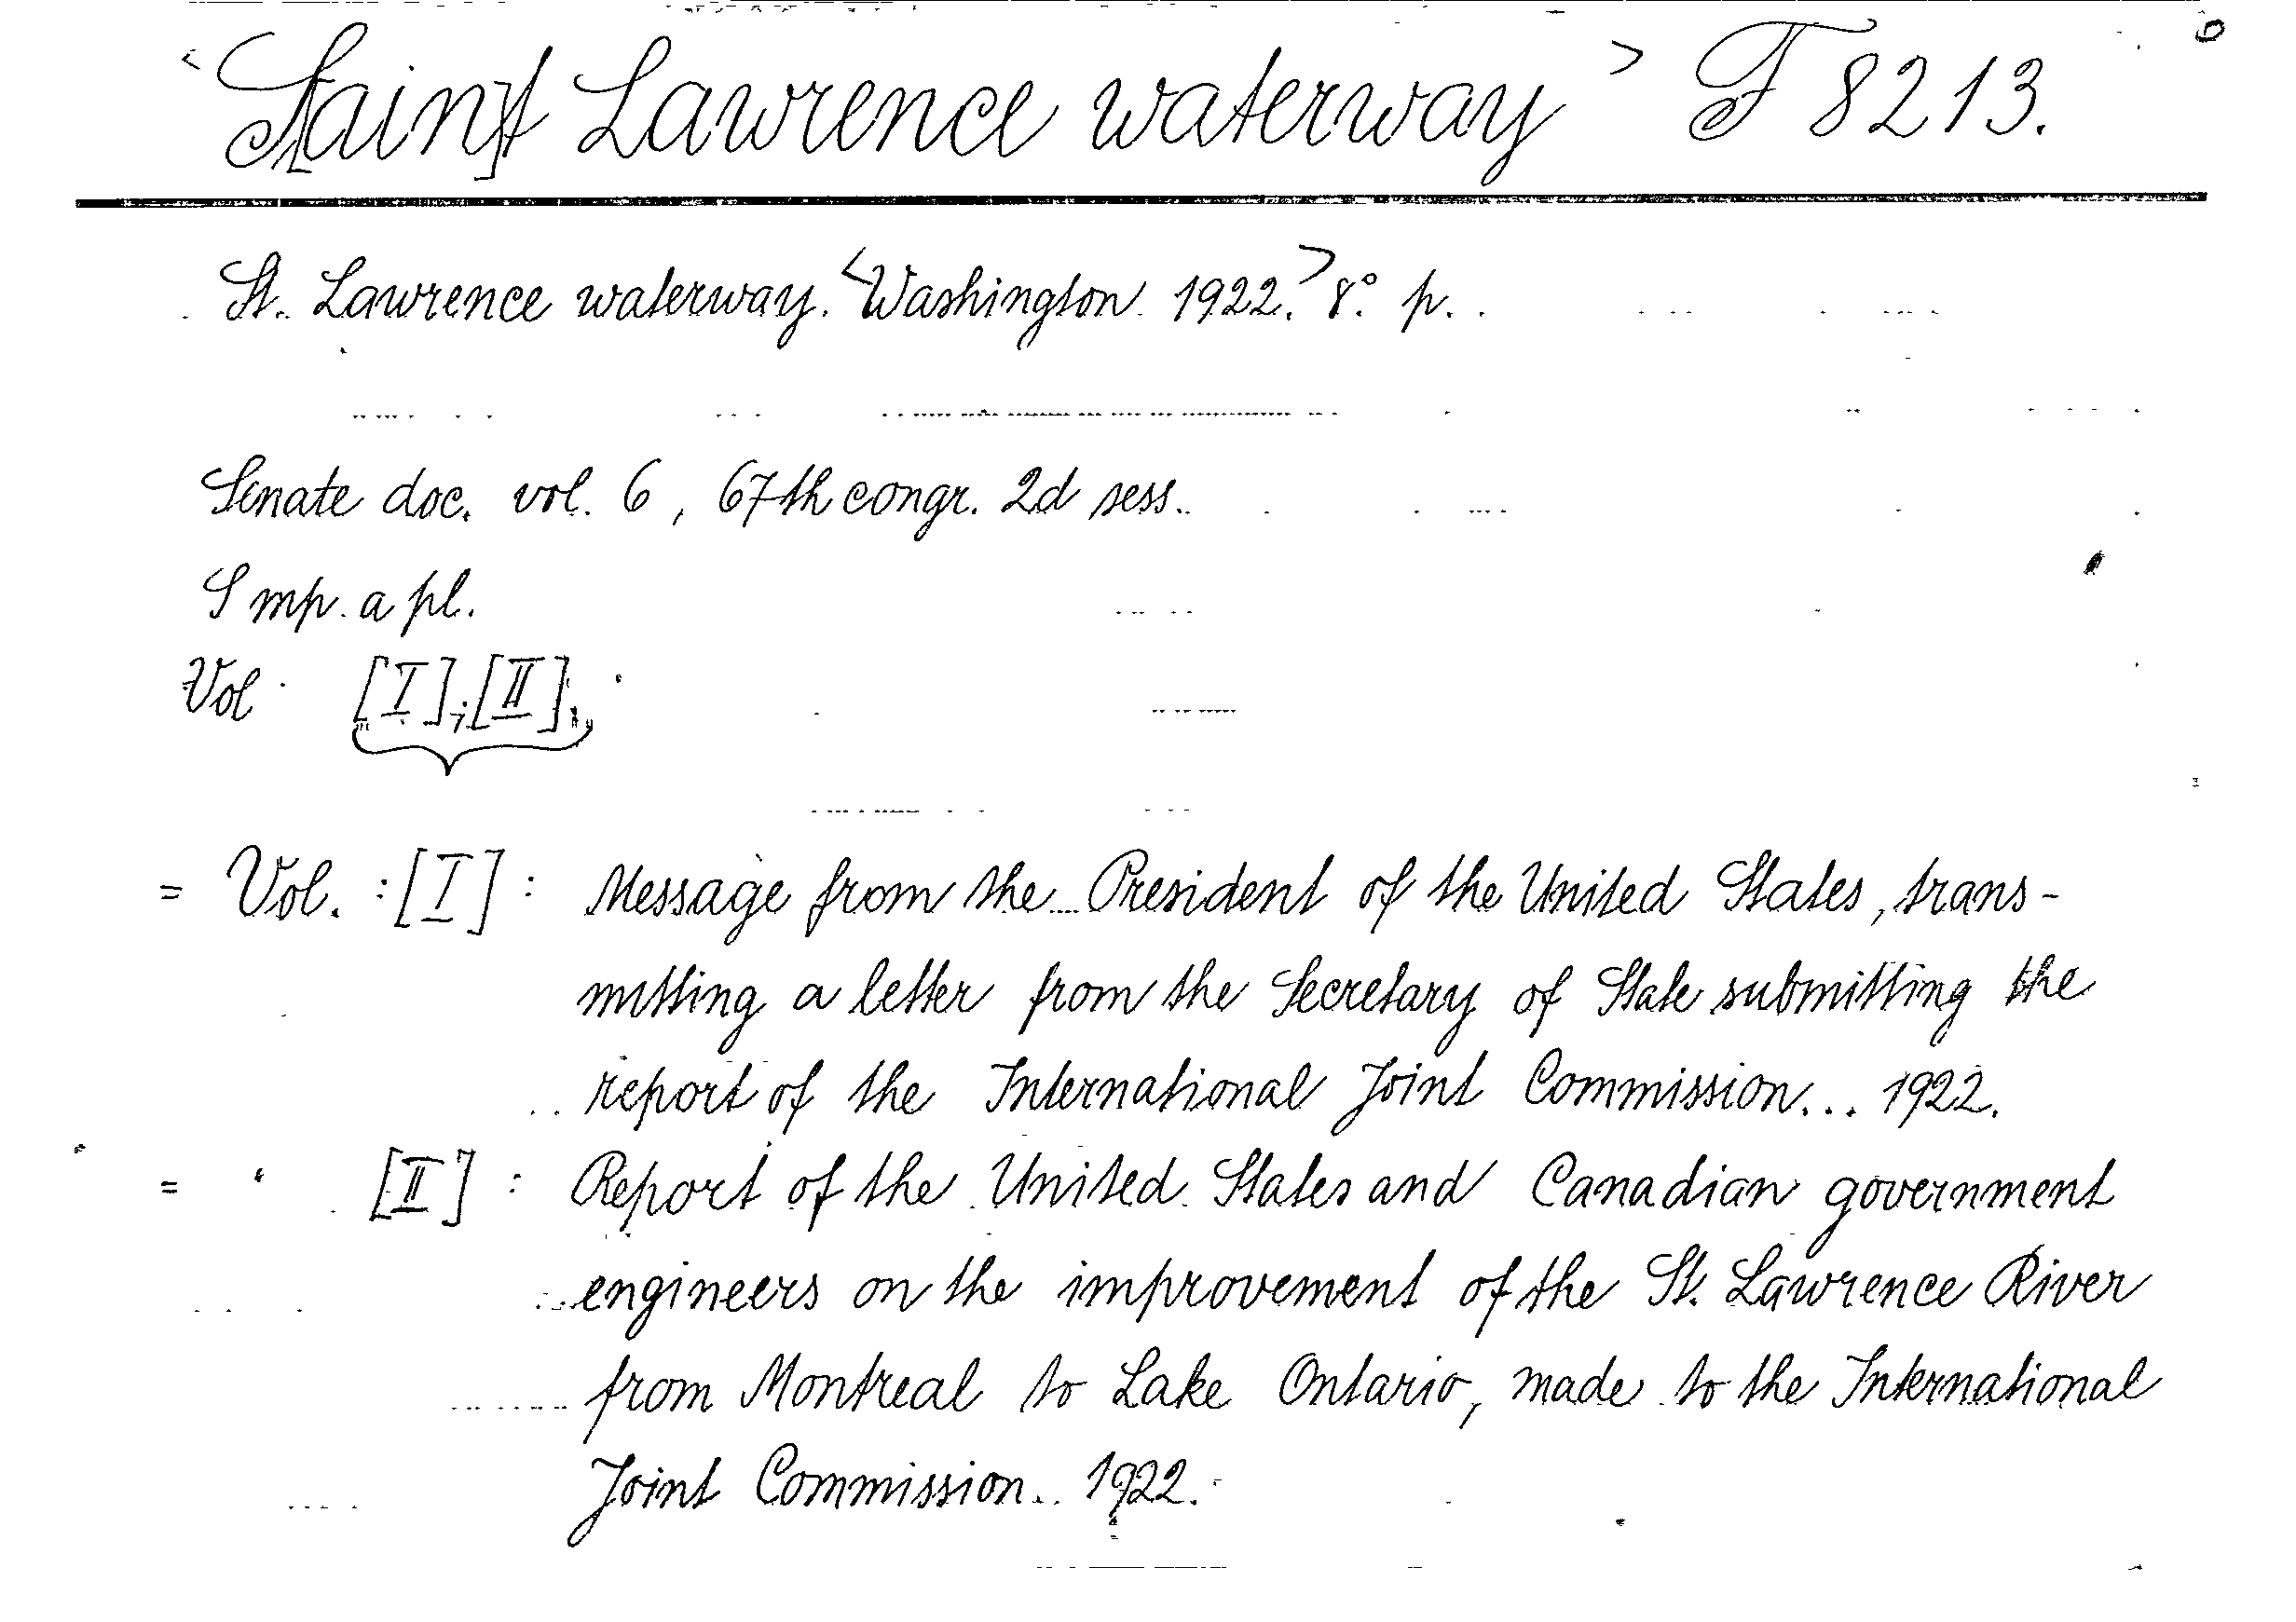 <S[ain]t Lawrence waterway> F 8213.
St. Lawrence waterway. <Washington 1922.> 8°. p..
Senate doc. vol. 6, 67th congr. 2d sess.
S mp. a pl.
Vol [I];[II].
= Vol. : [I] : Message from the President of the United States, trans-
mitting a letter from the Secretary of State submitting the
report of the International Joint Commission... 1922.
= " [II] : Report of the United States and Canadian government
engineers on the improvement of the St. Lawrence River
from Montreal to Lake Ontario, made to the International
Joint Commission.. 1922.